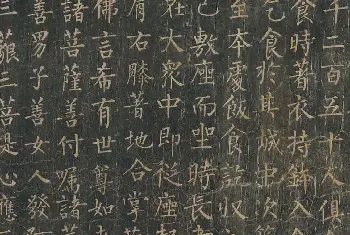 千二百五十人俱
食時著衣持鉢入舍
乞食於其城中次第
至本處飯食訖收
已敷座而坐時長
在大衆中即從座起
肩右膝著地合掌
佛言希有世尊如
諸菩薩善付囑諸菩
善男子善女人發
三藐三菩提心應